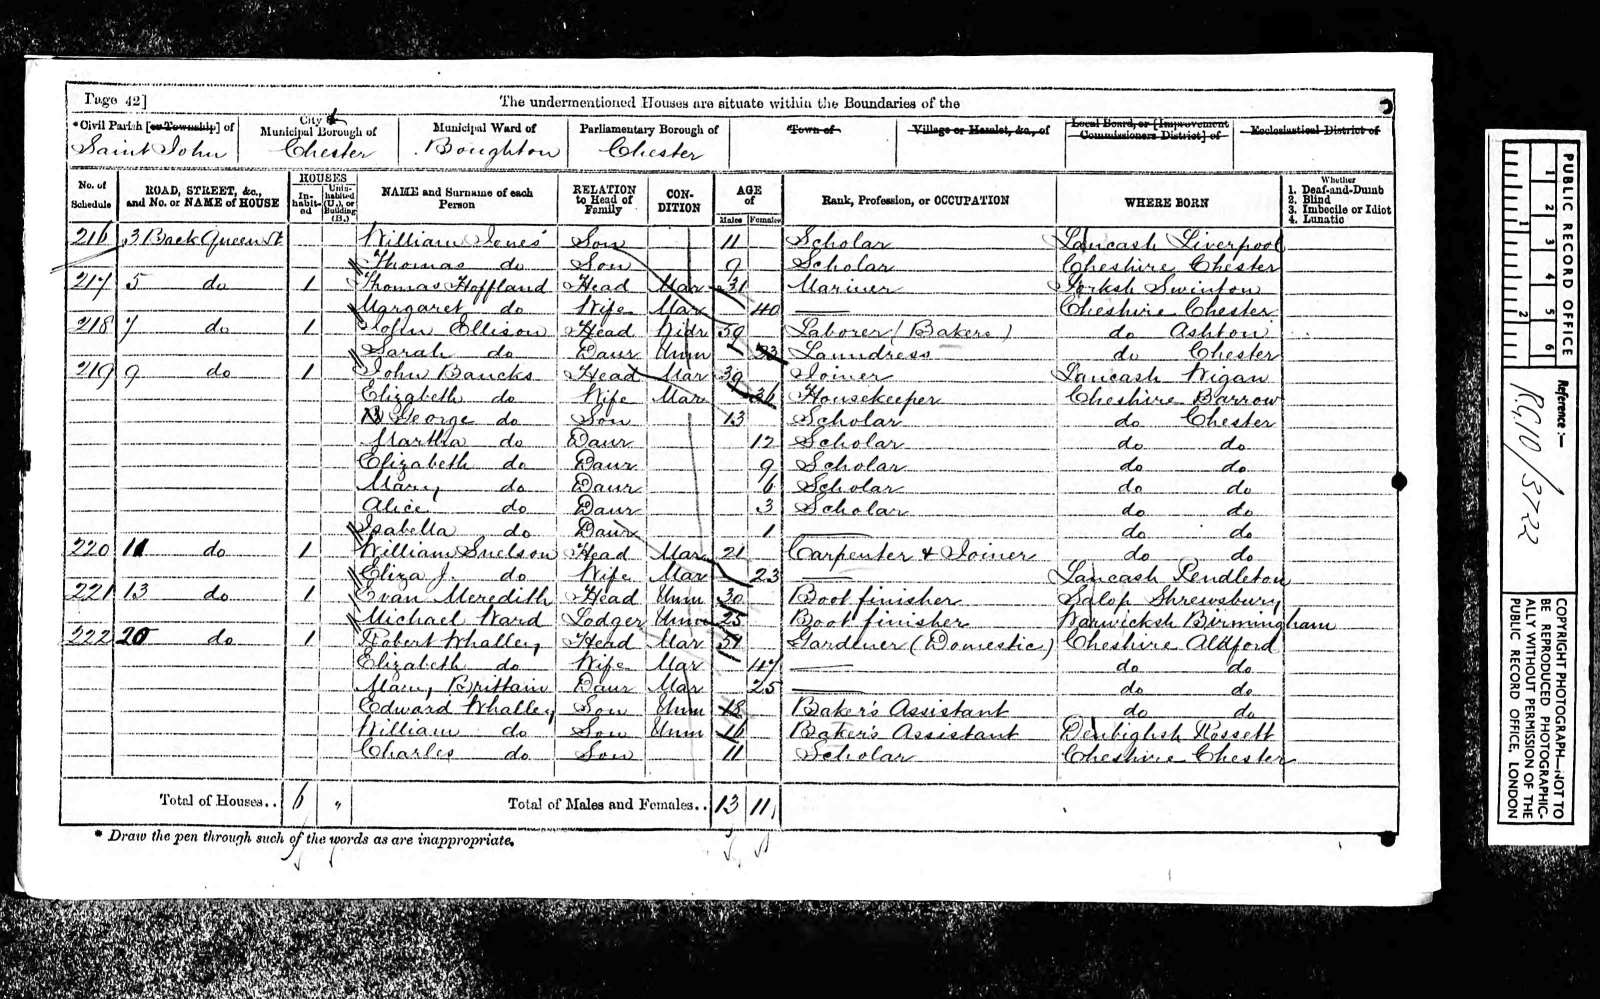 Page 42]
The undermentioned Houses are situate within the Boundaries of the
*Civil Parish [or Township] of
City
Municipal Borough of
Municipal Ward of
Parliamentary Borough of
Town of
Village or Hamlet, &c., of
Local Board, or [Improvement Commissioners District] of
Ecclesiastical District of
Saint John
Chester
Boughton
Chester
No. of Schedule
ROAD, STREET, &c., and No. or NAME of HOUSE
HOUSES
In-habit-ed
Unin-habited (U.), or Building (B.)
NAME and Surname of each Person
RELATION to Head of Family
CON-DITION
AGE of
Males
Females
Rank, Profession, or OCCUPATION
WHERE BORN
Whether
1. Deaf-and-Dumb
2. Blind
3. Imbecile or Idiot
4. Lunatic
216 3 Back Queen St William Jones Son 11 Scholar Lancash Liverpool
Thomas do Son 9 Scholar Cheshire Chester
217 5 do 1 Thomas Hoffland Head Mar 31 Mariner Yorksh Swinton
Margaret do Wife Mar 40 Cheshire Chester
218 7 do 1 John Ellison Head Widr 59 Laborer (Bakers) do Ashton
Sarah do Daur Unm 23 Laundress do Chester
219 9 do 1 John Bancks Head Mar 39 Joiner Lancash Wigan
Elizabeth do Wife Mar 36 Housekeeper Cheshire Barrow
George do Son 13 Scholar do Chester
Martha do Daur 12 Scholar do do
Elizabeth do Daur 9 Scholar do do
Mary do Daur 6 Scholar do do
Alice do Daur 3 Scholar do do
Isabella do Daur 1 do do
220 11 do 1 William Snelson Head Mar 21 Carpenter & Joiner do do
Eliza J. do Wife Mar 23 Lancash Pendleton
221 13 do 1 Evan Meredith Head Unm 30 Boot finisher Salop Shrewsbury
Michael Ward Lodger Unm 25 Boot finisher Warwicksh Birmingham
222 20 do 1 Robert Whalley Head Mar 51 Gardener (Domestic) Cheshire Aldford
Elizabeth do Wife Mar 47 do do
Mary Brittain Daur Mar 25 do do
Edward Whalley Son Unm 18 Baker's Assistant do do
William do Son Unm 16 Baker's Assistant Denbighsh Rossett
Charles do Son 11 Scholar Cheshire Chester
Total of Houses.. 6 " Total of Males and Females.. 13 11
* Draw the pen through such of the words as are inappropriate.
PUBLIC RECORD OFFICE
1 2 3 4 5 6
1 2
Reference:-
RG10/3722
COPYRIGHT PHOTOGRAPH—NOT TO
BE REPRODUCED PHOTOGRAPHIC-
ALLY WITHOUT PERMISSION OF THE
PUBLIC RECORD OFFICE, LONDON